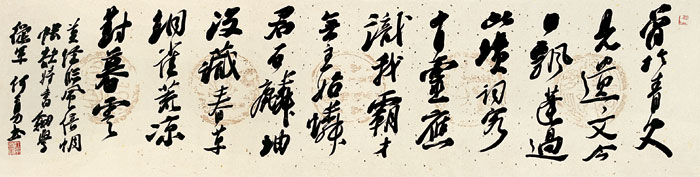 曾於青史
見遺文今
日飄蓬過
此墳詞客
有靈應
識我霸才
無主始憐
君石麟埋
沒藏春草
銅雀荒涼
對暮雲
莫怪臨風倍惆
悵欲將書劍學
從軍 何書